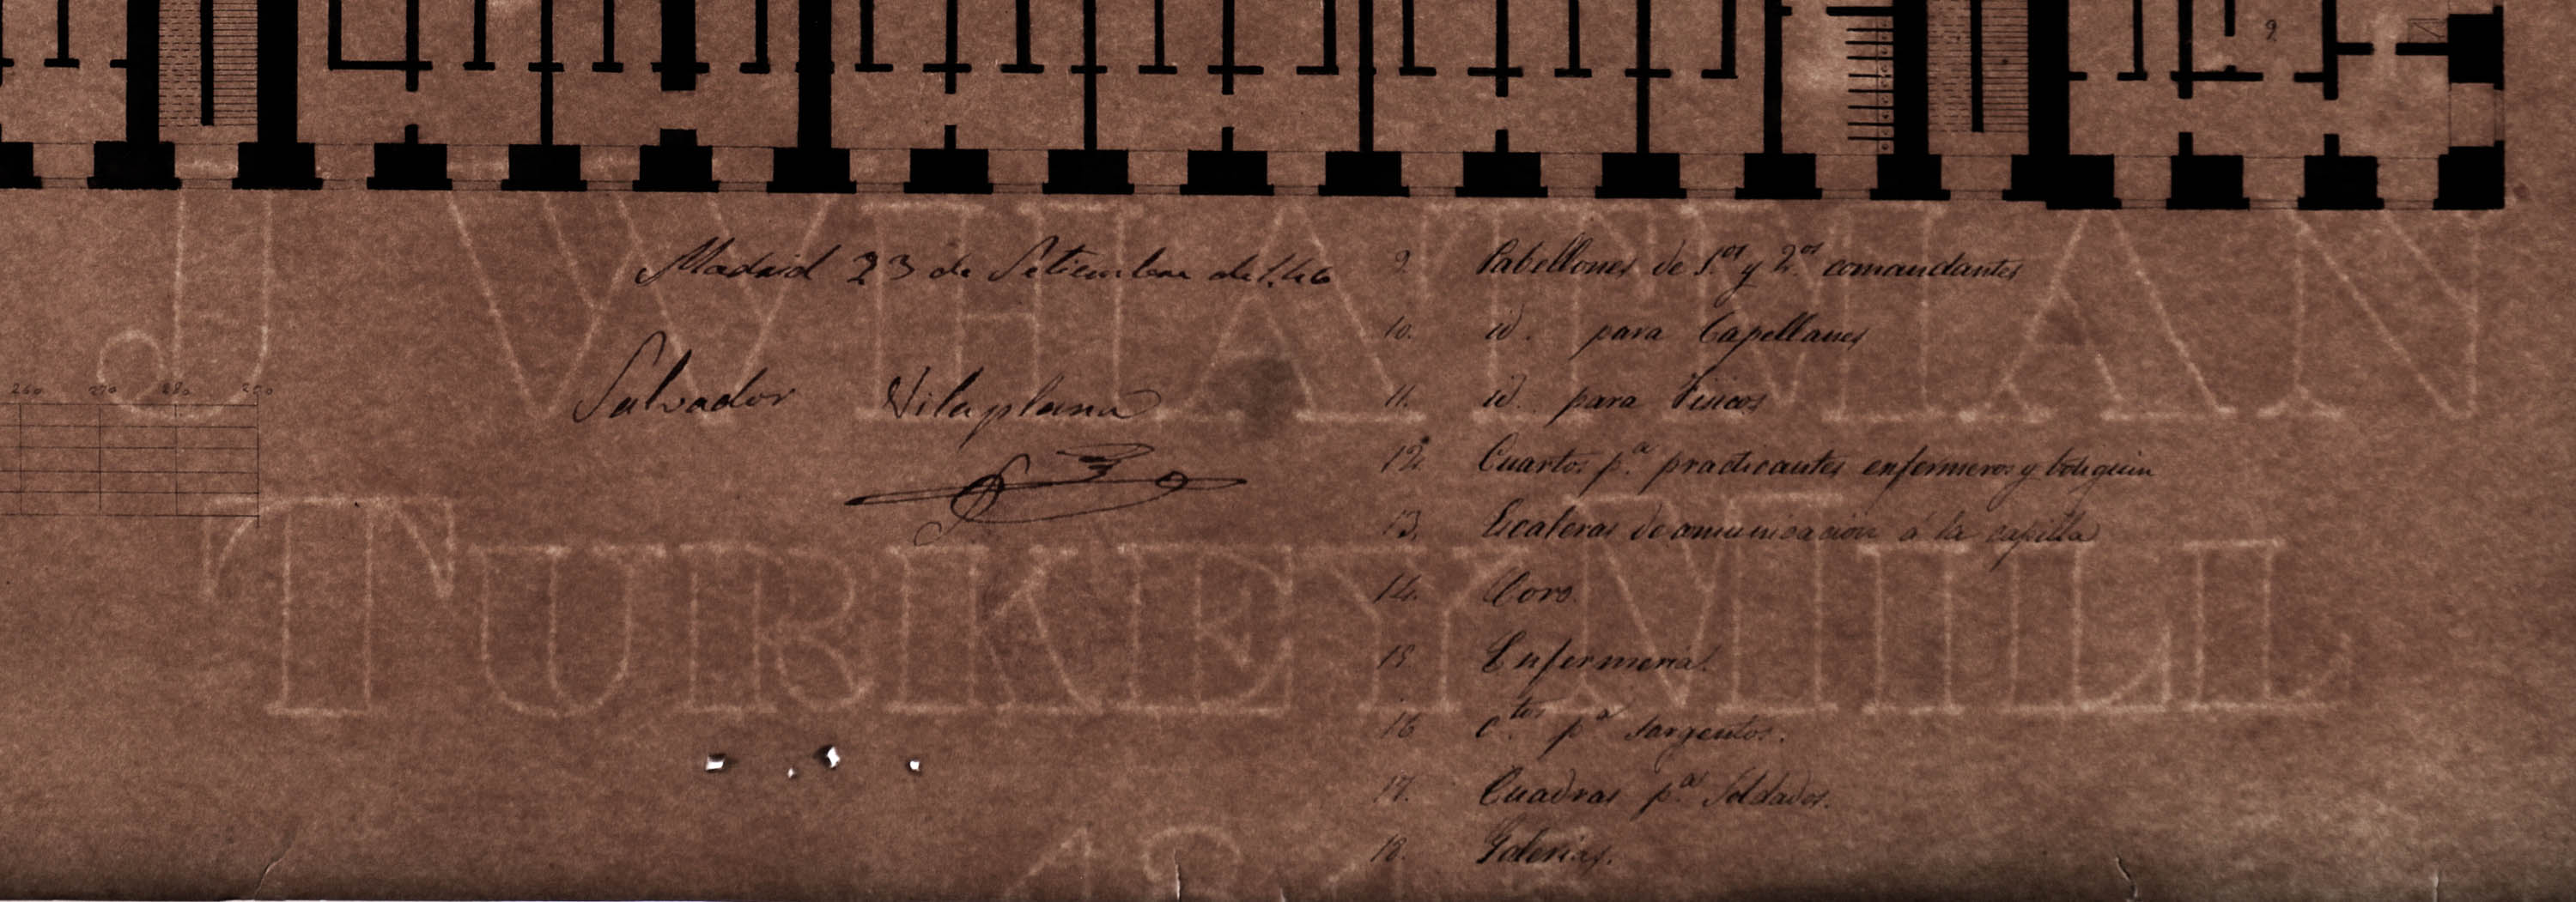 9
J WHATMAN
Madrid 23 de Setiembre de 1.46
Salvador Vilaplana
260 270 280 290
TURKEY MILL
9. Pabellones de 1.os y 2.os comandantes
10. id. para Capellanes
11. id. para Fisicos
12. Cuartos p.a practicantes enfermeros y botiquin
13. Escaleras de comunicacion á la capilla
14. Coro.
15 Enfermeria.
16 C.tos p.a Sargentos.
17. Cuadras p.as Soldados.
18. Galerias.